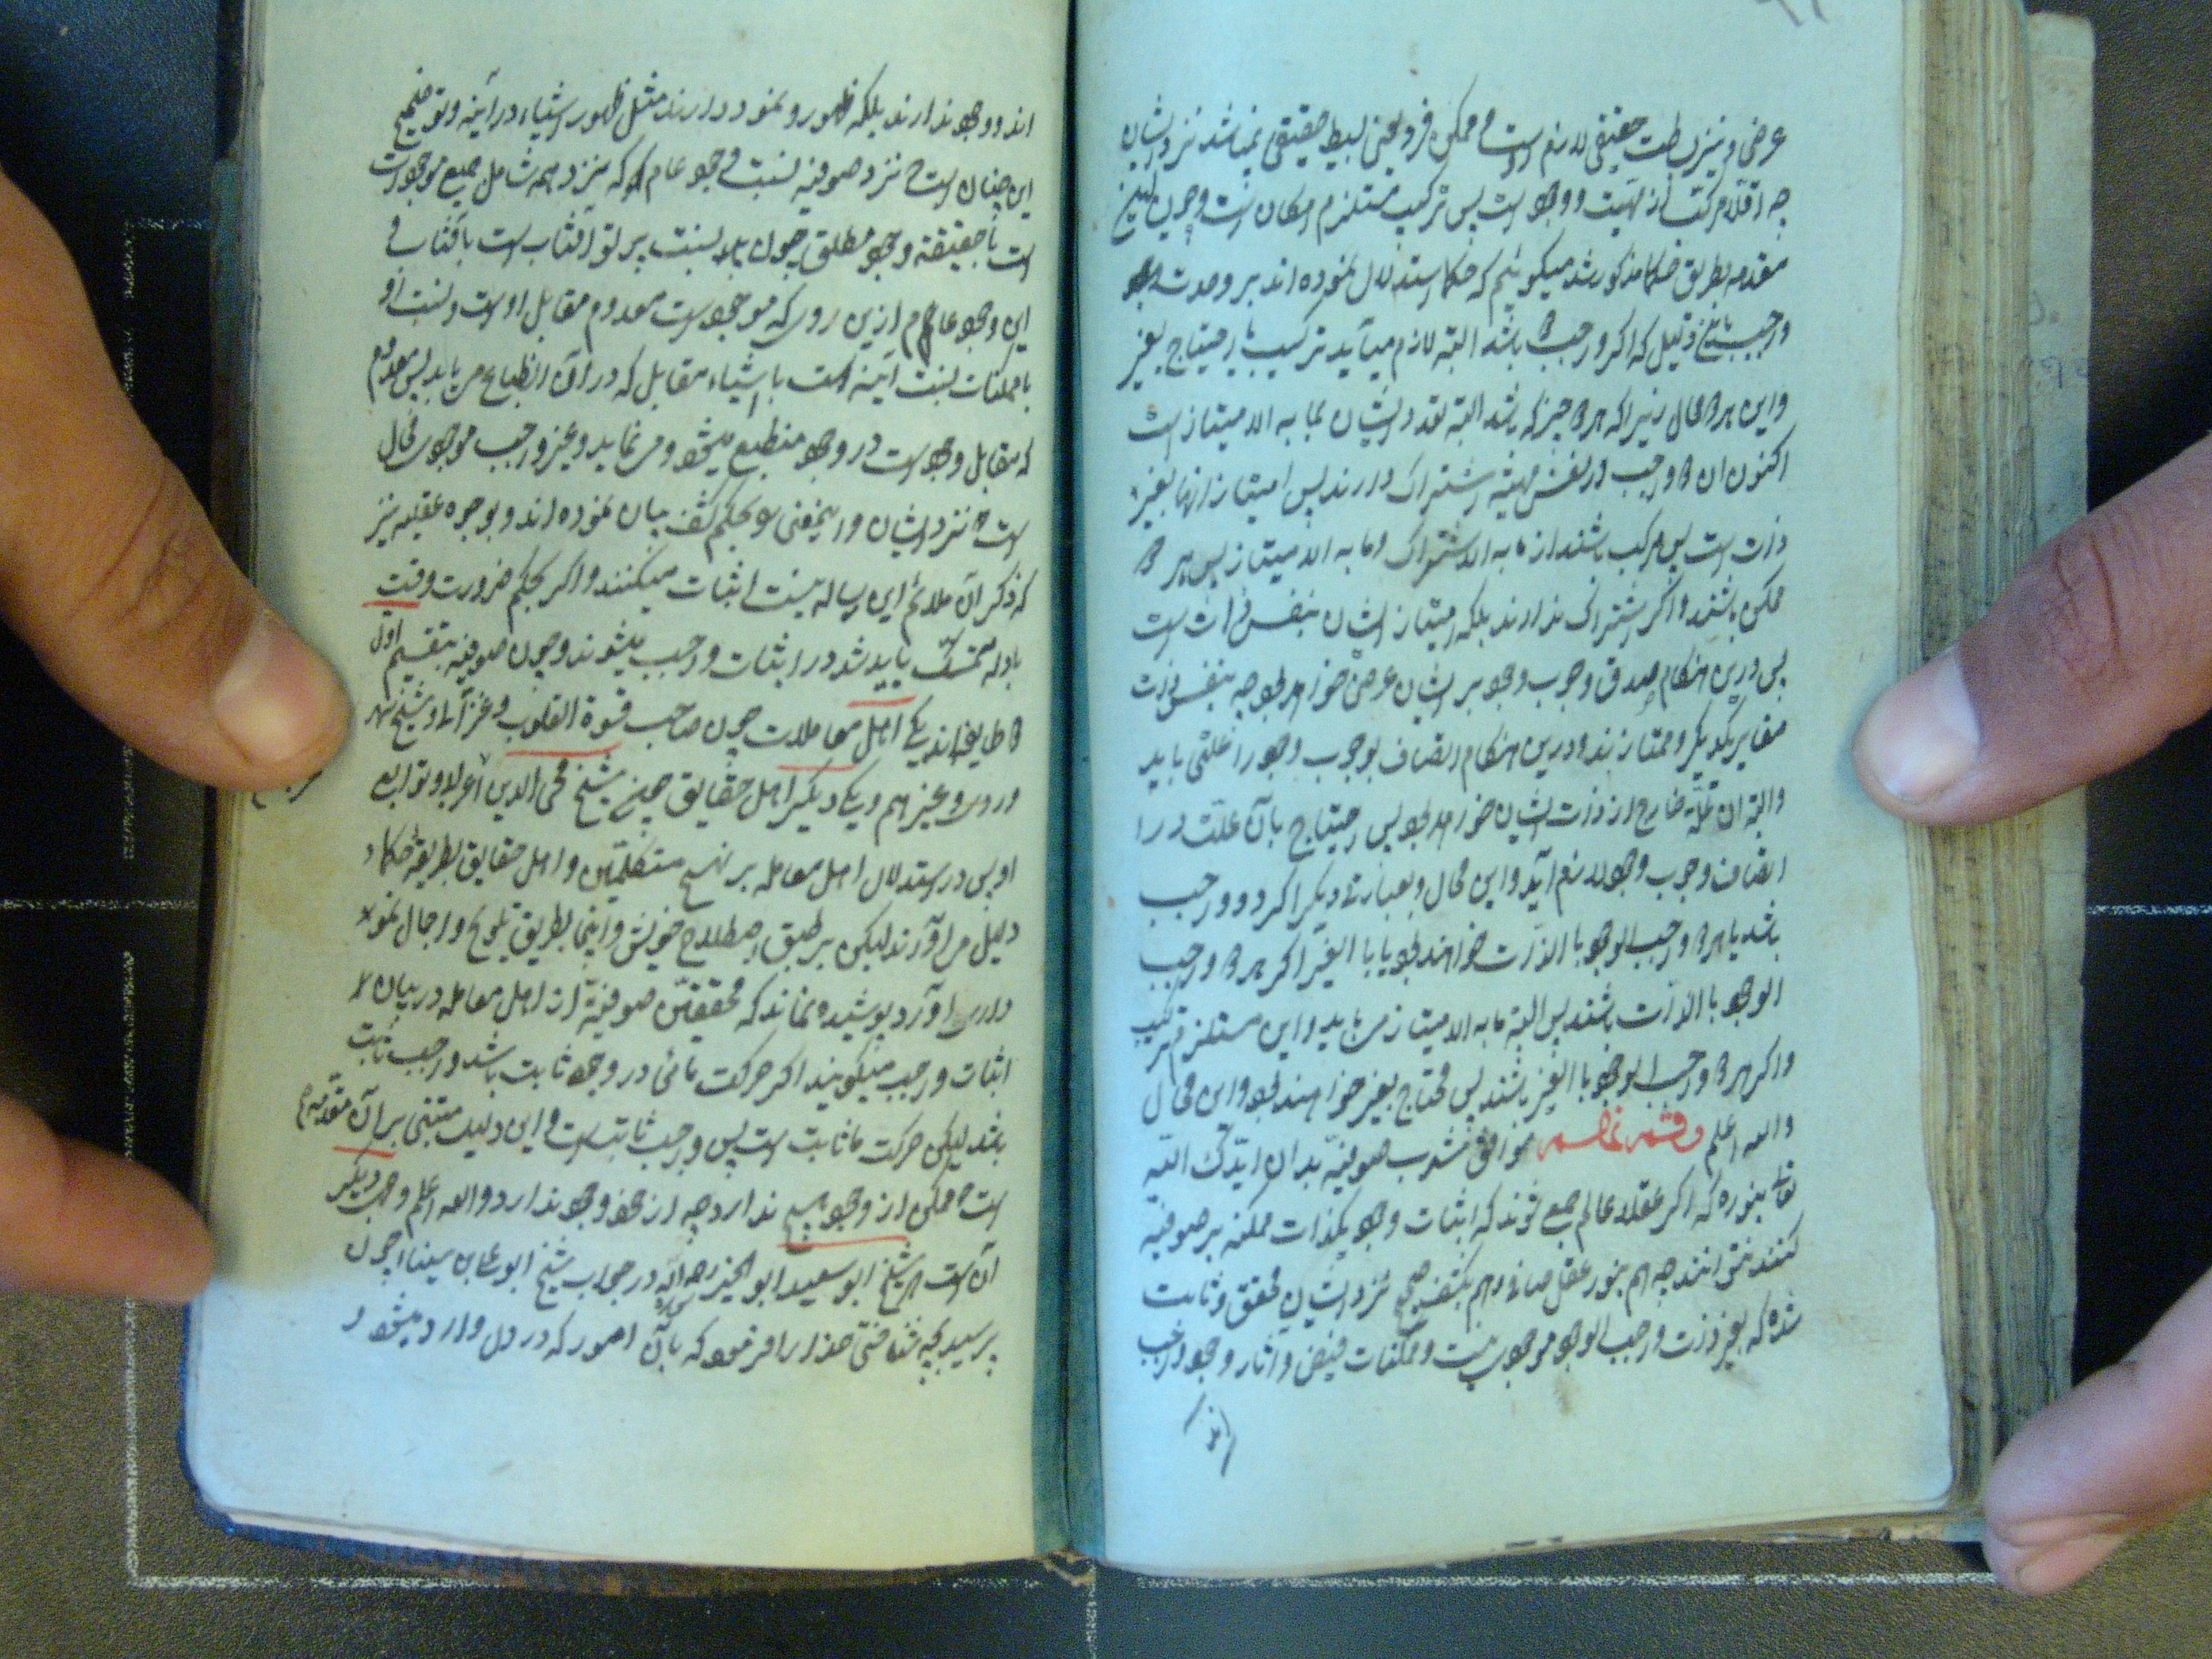 عرضی و نیز بساطت حقیقی لازم اوست و ممکن فرو یعنی بسیط حقیقی نمیباشد نزد ایشان
چه اقلا مرکب از مهیت و وجود است پس ترکیب مستلزم امکان است و چون این
مقدمه بطریق حکما مذکور شد میگوئیم که حکما استدلال نموده اند بر وحدت
واجب باین دلیل که اگر واجب باشد البته لازم میآید ترکیب یا احتیاج بغیر
و این هر دو محال زیرا که هر دو چیز که باشد البته تعدد ایشان بما به الامتیاز است
اکنون ان دو واجب در نفس مهیته اشتراک دارند پس امتیاز انها بغیر
ذات است پس مرکب باشند از ما به الاشتراک و ما به الامتیاز پس هر دو
ممکن باشند و اگر اشتراک ندارند بلکه امتیاز ایشان بنفس ذات است
پس درین هنگام صدق وجوب وجود بر ایشان عرضی خواهد بود چه بنفس ذات
مغایر یکدیگر و ممتازند و درین هنگام اتصاف بوجوب وجود را علتی باید
و البته ان علة خارج از ذات ایشان خواهد بود پس احتیاج بآن علت در
اتصاف وجوب وجود لازم آید و این محال و بعبارت دیگر اگر دو واجب
باشد یا هر دو واجب الوجود با الذات خواهند بود یا با الغیر اگر هر دو واجب
الوجود با الذات باشند پس البته ما به الامتیاز می باید و این مستلزم ترکیب
و اگر هر دو واجب الوجود با الغیر باشند پس محتاج بغیر خواهند بود و این محال
و الله اعلم موافق مشرب صوفیه بدان ایدک الله
تعالی بنوره که اگر عقلاء عالم جمع شوند که اثبات وجود یکذات ممکنه بر صوفیه
کنند نتوانند چه هم بنور عقل صافی و هم بکشف صحیح نزد ایشان محقق و ثابت
شده که بغیر ذات واجب الوجود موجودی نیست و ممکنات فیض و اثار وجود واجب
اند
اند و وجود ندارند بلکه ظهور و نمود دارند مثل ظهور اشیاء در آینه و توضیح
این چنان است که نزد صوفیه نسبت وجود عام که نزد همه شامل جمیع موجودات
است با حقیقة وجود مطلق چون نسبت پرتو آفتاب است بآفتاب و
این وجود عام هم ازین روی که موجود است معدوم مقابل اوست و نسبت او
با ممکنات نسبت آینه است با اشیاء مقابل که در آن انطباع می یابد پس معدوم
که مقابل وجود است در وجود منطبع میشود و می نماید و غیر واجب موجود محال
است نزد ایشان و این معنی بحکم کشف بیان نموده اند و بوجوه عقلیه نیز
که ذکر آن ملائم این رساله نیست اثبات میکنند و اگر بحکم ضرورت وقت
بادله متمسک باید شد در اثبات واجب میشوند و چون صوفیه بتقسیم اول
دو طایفه اند یکی اهل معاملات چون صاحب قوة القلوب و غزالی و شیخ
وردی و غیرهم و یکی دیگر اهل حقایق شیخ محی الدین اعرابی و توابع
او پس در استدلال اهل معامله بر نهج متکلمین و اهل حقایق بطریقه حکما
دلیل می آورند لیکن بر طبق اصطلاح خویش و اینجا بطریق تلویح و اجمال نمود
پوشیده نماند که محققین صوفیه از اهل معامله در بیان
اثبات واجب میگویند اگر حرکت مائی در وجود ثابت باشد واجب ثابت
باشد لیکن حرکت ما ثابت است پس واجب ثابت است و این دلیل مبتنی بر آن مقدمه
است که ممکن از وجود هیچ ندارد چه از خود وجود ندارد و الله اعلم وجه دیگر
آن است که شیخ ابو سعید ابو الخیر رحمه الله در جواب شیخ ابو علی سینا چون
پرسید بچه شناختی خدا را فرمود که بآن امور که در دل وارد میشود و